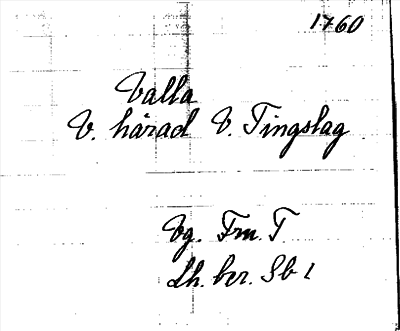 1760
Valla
V. härad V. Tingslag
Vg. Fm. T.
Lh. ber. Sb 1